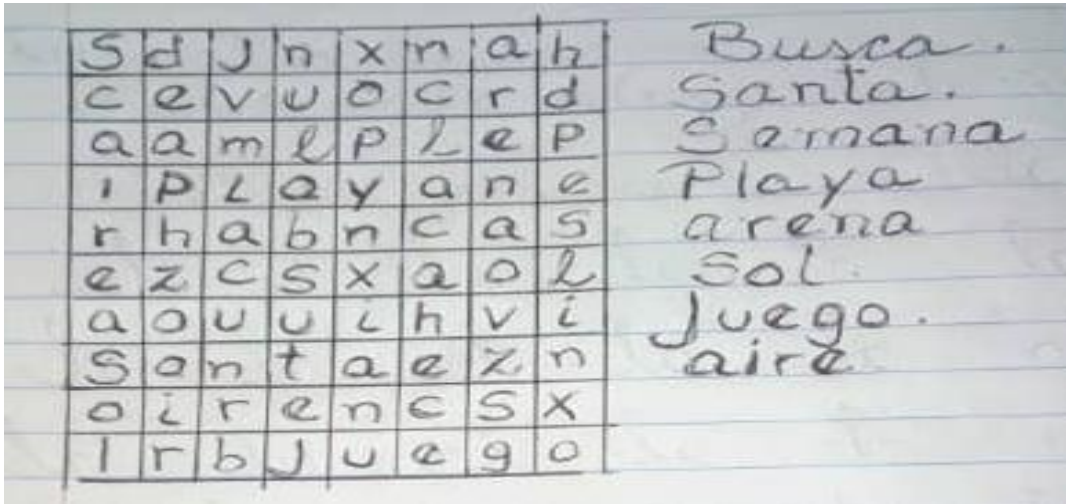 S d J n x n a h
c e v u o c r d
a a m l p L e p
i p L a y a n e
r h a b n c a s
e z c s x a o l
a o u u i h v i
S a n t a e z n
o i r e n c s x
l r b J u e g o
Busca.
Santa.
Semana
Playa
arena
Sol.
Juego.
aire